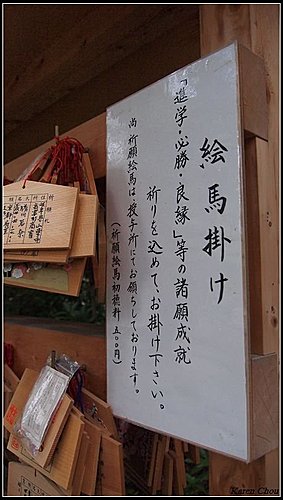 絵馬掛け
「進学・必勝・良縁」等の諸願成就
祈りを込めて、お掛け下さい。
尚 祈願絵馬は授与所にてお頒ちしております。
(祈願絵馬初穂料 五〇〇円)
Karen Chou